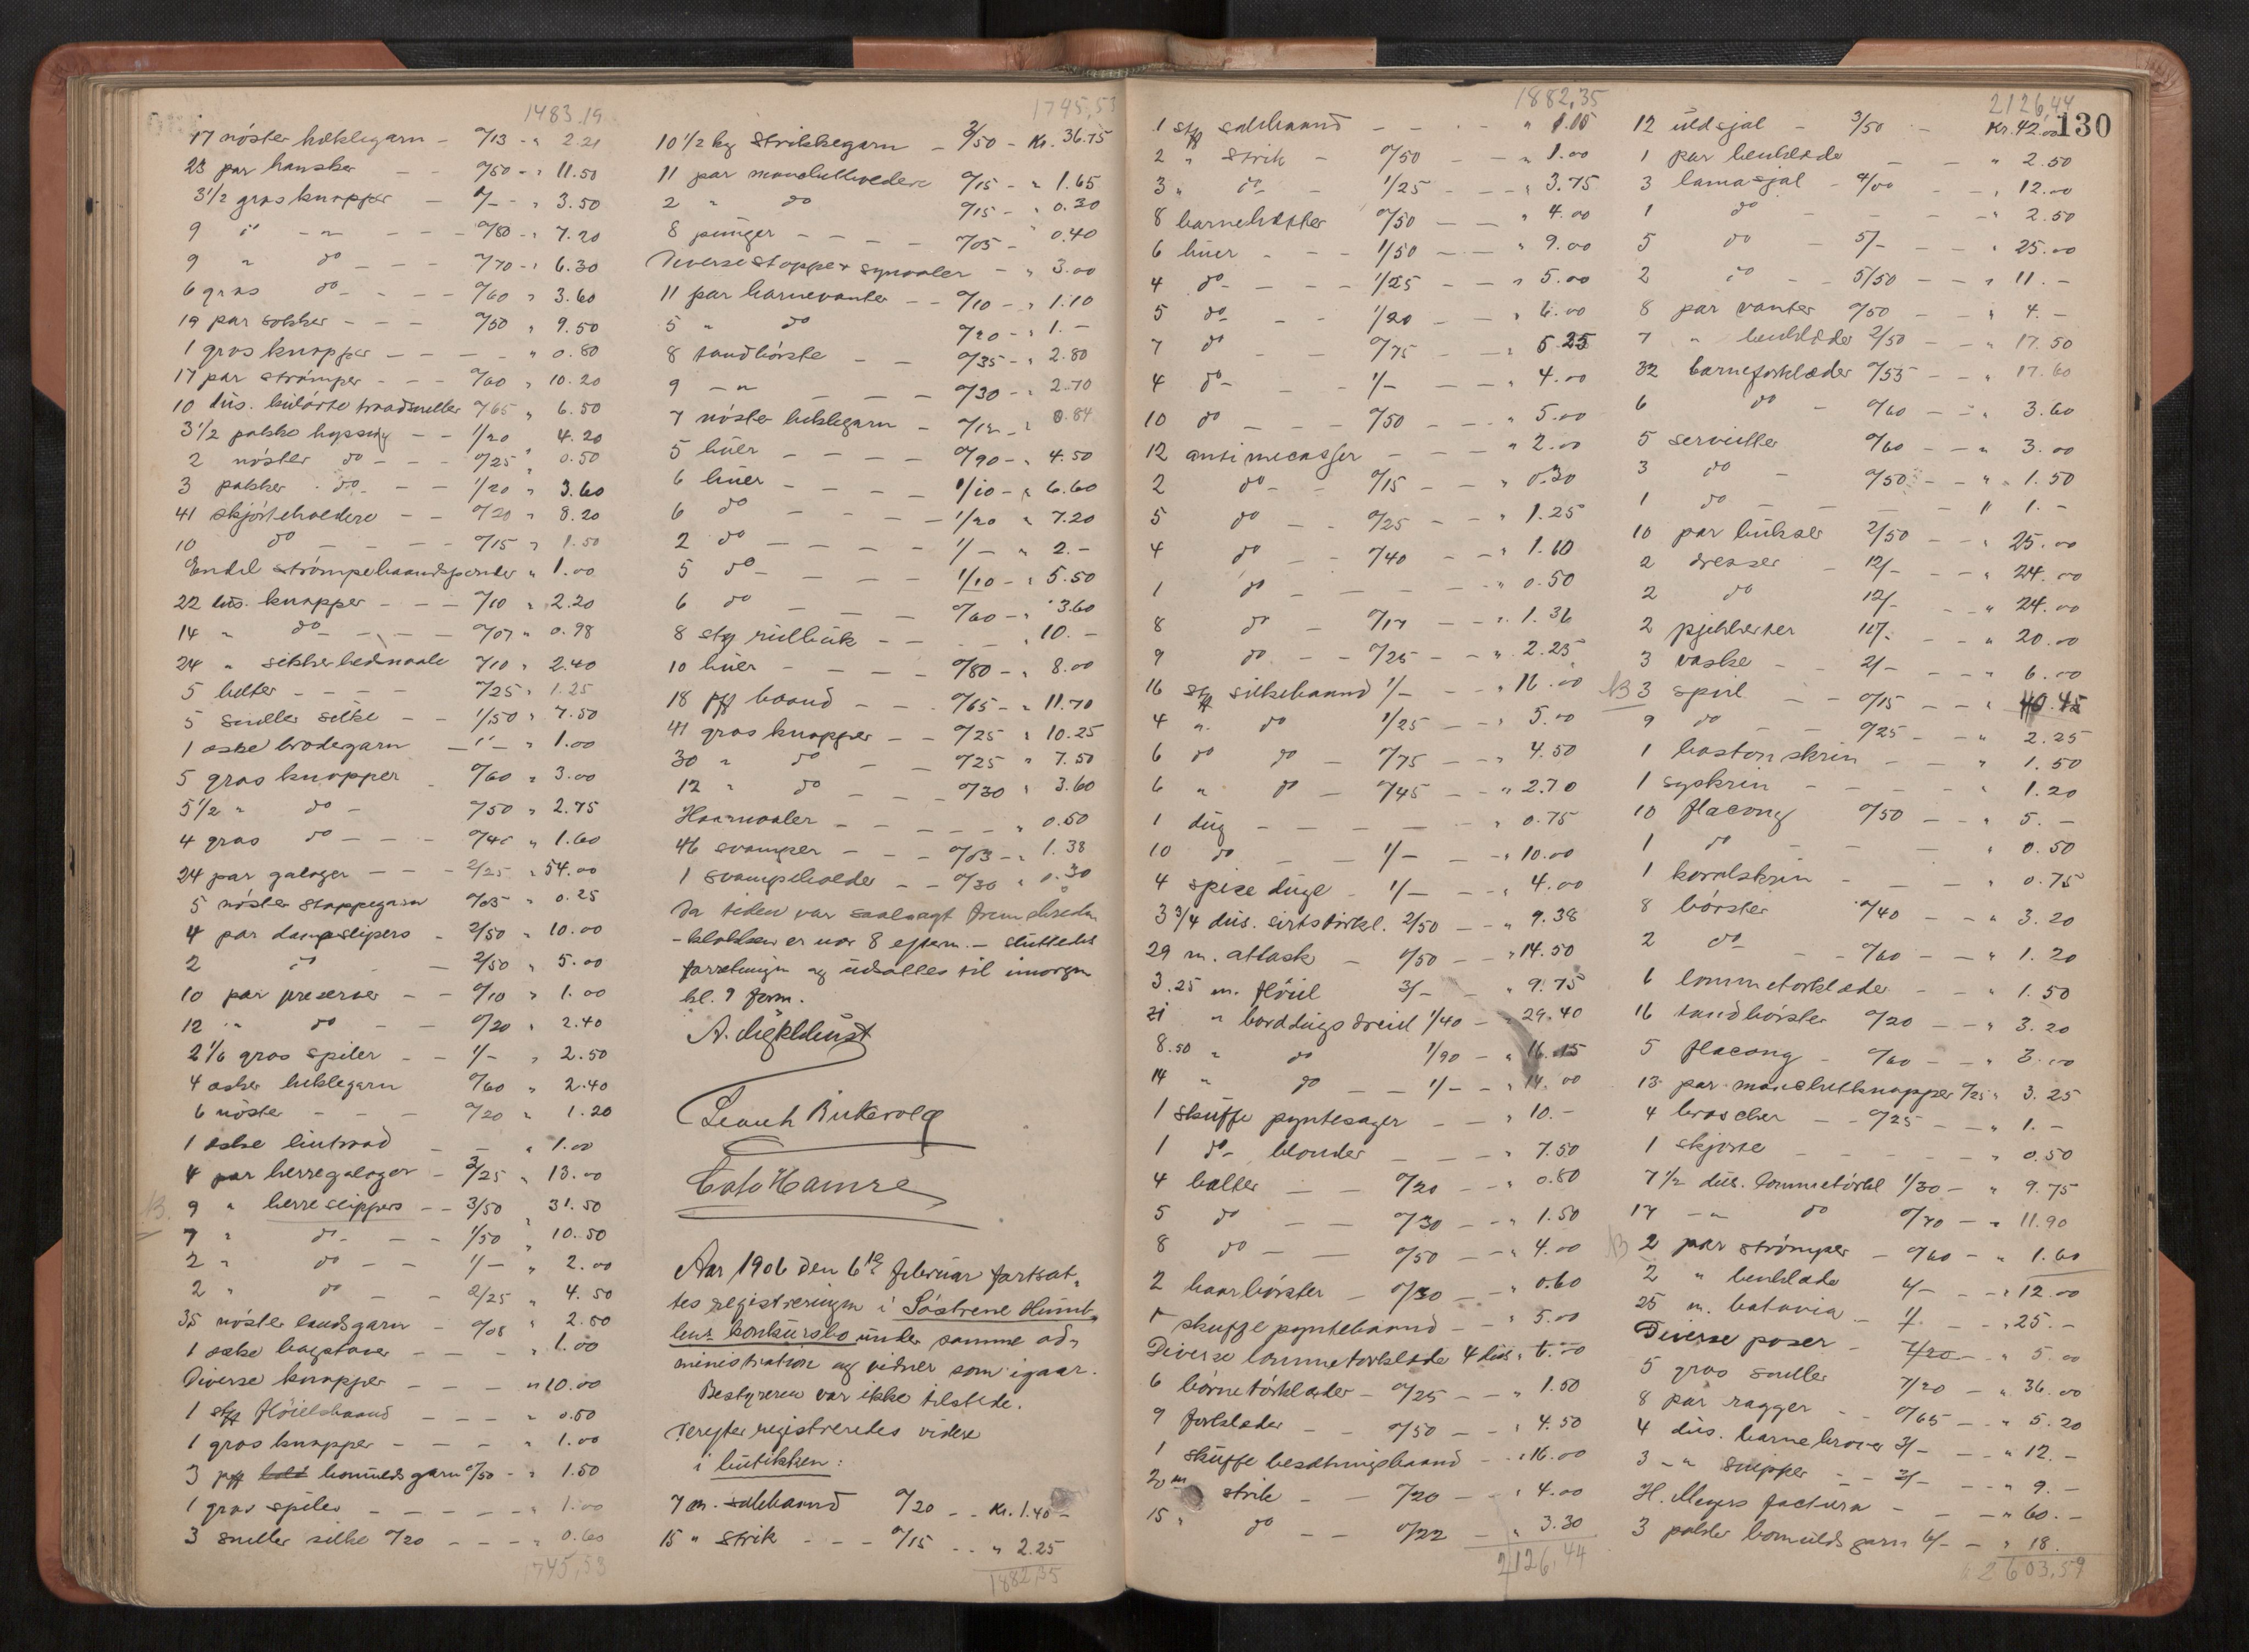 1483.19
17 nöster hæklegarn - 0/13 - " 2.21
23 par hansker - - 0/50 - " 11.50
3 1/2 gros knapper - 1/- - " 3.50
9 " - " - - - 0/80 - " 7.20
9 " do - - - 0/70 - " 6.30
6 gros do - - - 0/60 " 3.60
19 par sokker - - - 0/50 " 9.50
1 gros knapper - - - - " 0.80
17 par strömper - - - 0/60 " 10.20
10 dus. kulörte traadsneller 0/65 " 6.50
3 1/2 pakke hyssing - - 1/20 " 4.20
2 nöster do - - - 0/25 " 0.50
3 pakker do - - 1/20 " 3.60
41 skjorteholdere - - 0/20 " 8.20
10 do - - - - 0/15 " 1.50
Endel strömpebaandspender " 1.00
22 dus. knapper - - - 0/10 " 2.20
14 " do - - - - 0/07 " 0.98
24 " sikkerhednaale 0/10 " 2.40
5 belter - - - - 0/25 " 1.25
5 sneller silke - - 1/50 " 7.50
1 æske brodegarn - " - " 1.00
5 gros knapper - 0/60 " 3.00
5 1/2 " do - 0/50 " 2.75
4 gros do - - - 0/40 " 1.60
24 par galoger - - - 2/25 " 54.00
5 nöster stoppegarn 0/05 " 0.25
4 par dampslipers - 2/50 " 10.00
2 do - 2/50 " 5.00
10 par preserver - - 0/10 " 1.00
12 " do - - 0/20 " 2.40
2 1/6 gros spiler - - 1/- " 2.50
4 æsker heklegarn 0/60 " 2.40
6 nöster - - - 0/20 " 1.20
1 æske lintraad - - " 1.00
4 par herregaloger - 3/25 " 13.00
NB. 9 " herre slippers - - 3/50 " 31.50
7 " do - - - 1/50 " 10.50
2 " do - - 1/- " 2.00
2 " do - - 2/25 " 4.50
35 nöster landsgarn - 0/08 " 2.80
1 æske bogstaver - - - " 1.00
Diverse knapper - - - " 10.00
1 stk flöielsbaand - - - " 0.50
1 gros knapper - - - - " 1.00
3 pk bomuldsgarn 0/50 - " 1.50
1 gros spiler - - - - - " 1.00
3 sneller silke 0/20 - - - " 0.60
1745,53
1745,53
10 1/2 kg strikkegarn - 3/50 - Kr. 36.75
11 par manchetholdere 0/15 - " 1.65
2 " do 0/15 - " 0.30
8 punger - - - - 0/05 - " 0.40
Diverse stoppe & synaaler - " 3.00
11 par barnevanter - - 0/10 - " 1.10
5 " do 0/20 - " 1.-
8 tandbörste - - 0/35 - " 2.80
9 - " - - - 0/30 - " 2.70
7 nöster heklegarn - 0/12 - " 0.84
5 huer - - - - 0/90 - " 4.50
6 huer - - - - 1/10 - " 6.60
6 do - - - - 1/20 " 7.20
2 do - - - - 1/- " 2.-
5 do - - - - 1/10 - " 5.50
6 do - - 0/60 - " 3.60
8 stk rulbuk - - - - " 10.-
10 huer - - - - 0/80 - " 8.00
18 pk baand - - - 0/65 - " 11.70
41 gros knapper - - 0/25 " 10.25
30 " do - - 0/25 " 7.50
12 " do - - - 0/30 " 3.60
Haarnaaler - - - - - " 0.50
46 svamper - - - 0/03 - " 1.38
1 svampeholder - - 0/30 " 0.30
Da tiden var saalangt fremskreden
- klokken er nær 8 efterm. - sluttedes
forretningen og udsattes til imorgen
kl. 9 form.
Cato Hamre
Aar 1906 den 6te februar fortsat-
tes registreringen i Söstrene Humb-
lens konkursbo under samme ad-
ministration og vidner som igaar.
Bestyreren var ikke tilstede.
Derefter registreredes videre
i butikken:
7 m. baand 0/20 - - Kr. 1.40 -
15 " strik - - - 0/15 - - " 2.25
1882,35
1882,35
1 stk baand - - - - " 1.15
2 " strik - 0/50 - - " 1.00
3 " do - 1/25 - - - " 3.75
8 barnehatter 0/50 - - " 4.00
6 huer - - - 1/50 - - " 9.00
4 do - - - - 1/25 - - " 5.00
5 do - - 1/20 - - " 6.00
7 do - - 0/75 - - " 5.25
4 do - - - 1/- - - " 4.00
10 do - - - 0/50 - - " 5.00
12 antimecasser - - - - " 2.00
2 do - - 0/15 - - " 0.30
5 do - - 0/25 - - " 1.25
4 do - 0/40 - - " 1.60
1 do - - - - - " 0.50
8 do - 0/17 - - " 1.36
9 do - - 0/25 - - " 2.25
16 stk silkebaand 1/- - - " 16.00
4 " do 1/25 - - " 5.00
6 do do - 0/75 - - " 4.50
6 " do - 0/45 - - " 2.70
1 dug - - - - - " 0.75
10 do - - 1/- - - " 10.00
4 spise duge - 1/- - - " 4.00
3 3/4 dus. sirtstörkl. 2/50 - - " 9.38
29 m. atlask - 0/50 - - " 14.50
3.25 m. flöiel 3/- - " 9.75
21 " borddugsdreiel 1/40 - " 29.40
8.50 " do 1/90 - " 16.15
14 " do - - 1/- - " 14.00
1 skuffe pyntesager - - " 10.-
1 do - blonder - - - " 7.50
4 belter - - 0/20 - - " 0.80
5 do - - 0/30 - - " 1.50
8 do - - 0/50 - - " 4.00
2 haarbörster - 0/30 - - " 0.60
1 skuffe pyntebaand - - " 5.00
Diverse lommetorklæde 4 dus. " 6.00
6 börnetörklæder - 0/25 - - " 1.50
9 forklæder - - 0/50 - - " 4.50
1 skuffe besætningsbaand - - " 16.00
20 m strik - - 0/20 - - " 4.00
15 " do - - 0/22 - " 3.30
2126,44
2126,44
130
12 uldsjal - 3/50 - Kr. 42.00
1 par benklæder - - " 2.50
3 lamasjal - 4/00 - - " 12.00
1 do - - - - " 2.50
5 do - 5/- - - " 25.00
2 do - - 5/50 - - " 11.-
8 par vanter 0/50 - - " 4.-
7 " benklæder 2/50 - - " 17.50
32 barneforklæder 0/55 - - " 17.60
6 do - 0/60 - - " 3.60
5 servietter 0/60 - - " 3.00
3 do - 0/50 - - " 1.50
1 do - - - " 1.-
10 par bukser 2/50 - - " 25.00
2 dresser - 12/- - - " 24.00
2 do 12/- - - " 24.00
2 pjekkerter 10/- - - " 20.00
3 vaske - - 2/- - - " 6.00
NB 3 speil - - 0/15 - - " 0.45
9 do - - 0/25 - - " 2.25
1 boston skrin - - " 1.50
1 syskrin - - - - " 1.20
10 flacong 0/50 - - " 5.-
1 do - - - - " 0.50
1 koralskrin - - - " 0.75
8 börster 0/40 - - " 3.20
2 do - - 0/60 - - " 1.20
6 lommetorklæder - - " 1.50
16 tandbörster 0/20 - - " 3.20
5 flacong - 0/60 - - " 3.00
13 par manchetknapper 0/25 " 3.25
4 broscher - - 0/25 - - " 1.-
1 skjorte - - - - " 0.50
7 1/2 dus. lommetörkl 1/30 - " 9.75
17 - " do 0/70 - " 11.90
NB 2 par strömper - 0/60 - " 1.60
2 " benklæde 6/- - " 12.00
25 m. batavia - 1/- - - " 25.-
Diverse poser - - " 5.00
5 gros sneller 7/20 - " 36.00
8 par ragger - - 0/65 - " 5.20
4 dus. barnekraver 3/- - - " 12.-
3 - " snipper - - 3/- - - " 9.-
H. Meyers factura - - - " 60.-
3 pakker bomuldsgarn 6/- - " 18.
2603,59